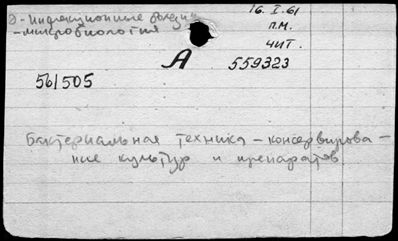 2-Инфекционные болезни
-микробиология
16.I.61
п.м.
чит.
А 559323
561505
Бактериальная техника – консервирова –
ние культур и препаратов